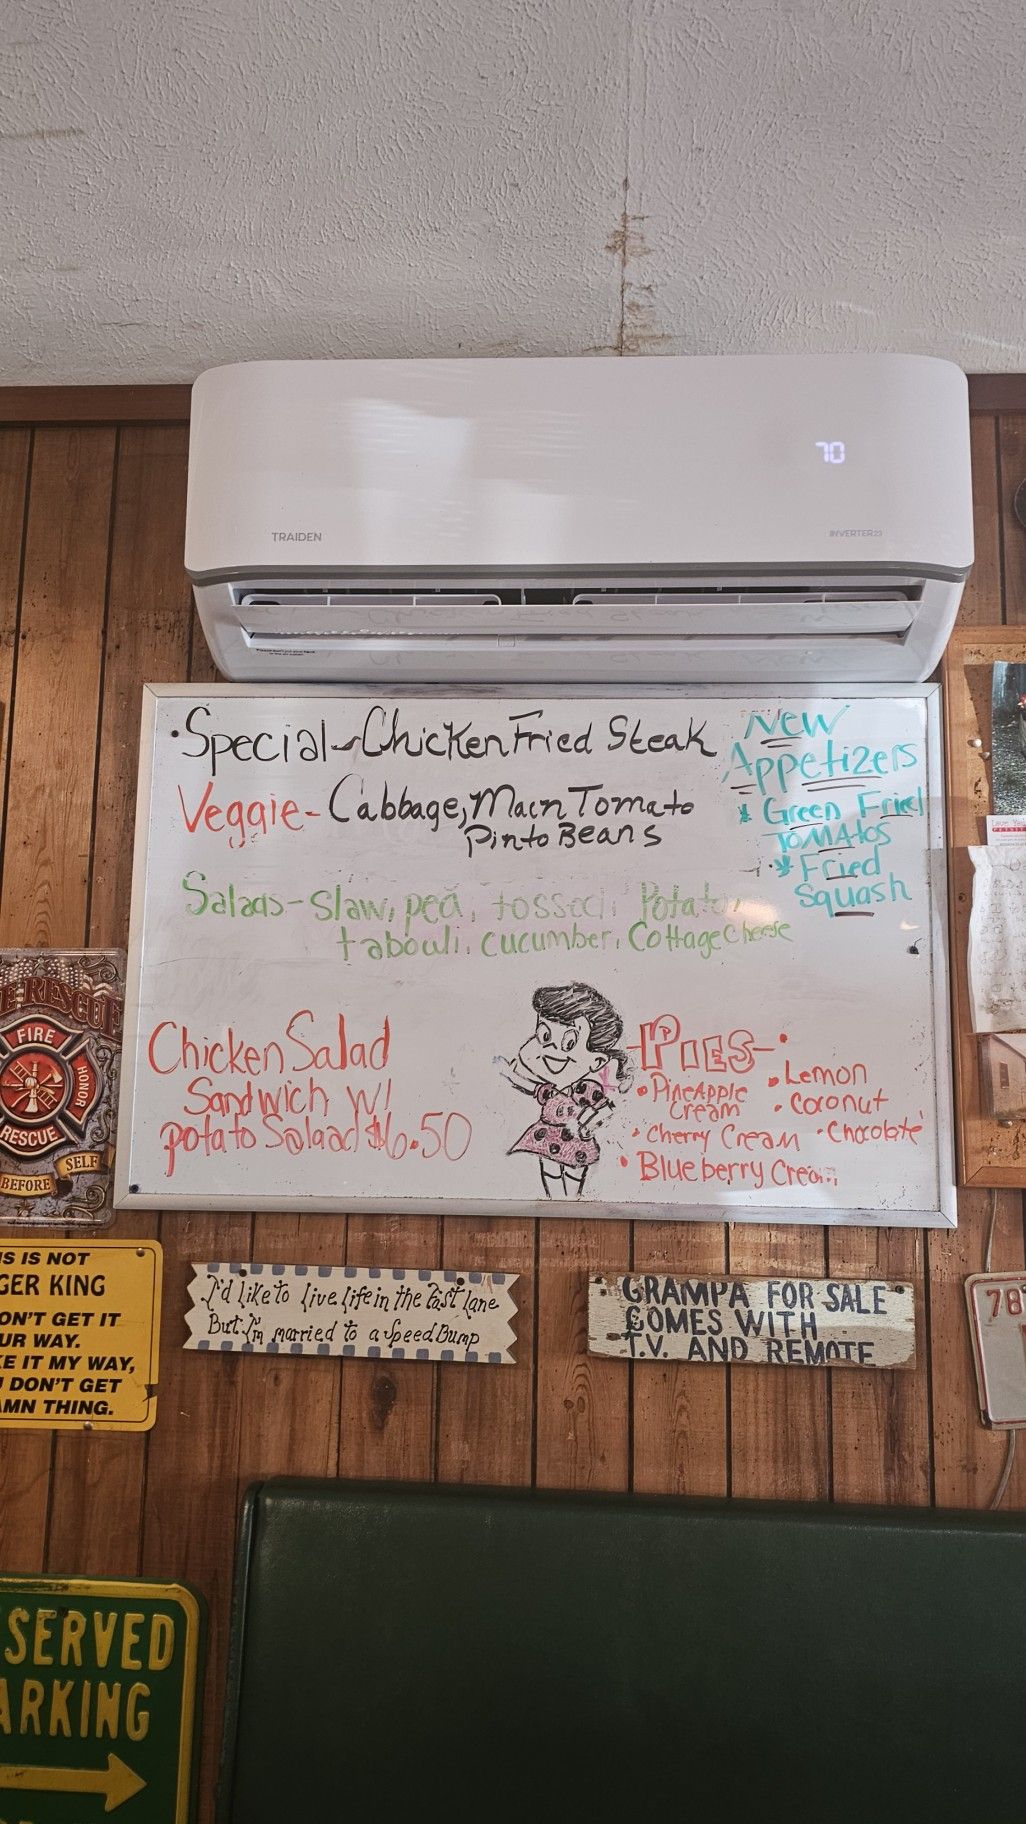 70
TRAIDEN
INVERTER23
Special - Chicken Fried Steak
Veggie - Cabbage, Macn Tomato
Pinto Beans
New
Appetizers
* Green Fried
TOMAtos
* Fried
Squash
Salads - Slaw, pea, tossed, Potato,
tabouli, cucumber, Cottage Cheese
Chicken Salad
Sandwich W/
potato Salaad $6.50
PIES -
• PineApple
Cream
• Cherry Cream
• Blueberry Cream
• Lemon
• Coconut
• Chocolate
E-RESCUE
FIRE
HONOR
RESCUE
BEFORE
SELF
IS IS NOT
GER KING
ON'T GET IT
UR WAY.
KE IT MY WAY,
U DON'T GET
AMN THING.
I'd like to live life in the fast lane
But I'm married to a Speed Bump
GRAMPA FOR SALE
COMES WITH
T.V. AND REMOTE
78
SERVED
ARKING